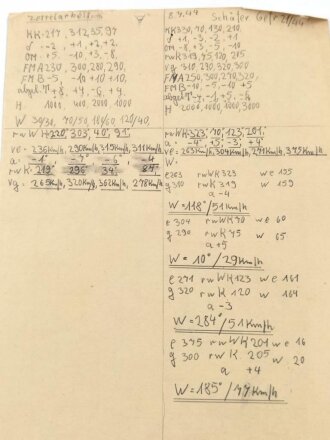 Zettelarbeit
KK 217, 312, 35, 97
δ -2, +1, +2, +2
OM +5 -10 +3, -8
FMA 230, 300, 280, 290
FMB -5, -10 +10 +10,
abgel. +8, +4, -8, +4
H 1000, 400, 2000 1000
W 30/30, 70/50, 18/60, 120/40,
rwK 220, 303, 40, 91,
ve = 236Km/h, 290Km/h, 315Km/h, 311Km/h
a: -1° -7° -6 -4
rwK 219° 296 34° 87°
vg: 265Km/h, 320Km/h, 362Km/h, 278Km/h
8.4.44 Schäfer Gefr 21/44
KK 330, 70, 130, 210,
δ +1, -3, -2, +1
OM -8 +3, -5, -10
rwK 319, 45, 120, 205
vg 310, 290, 320, 300
FMA 250, 300, 270, 320,
FMB -10, -5, -10 +5
abgel. -4, -1 +5, -6
H 2000, 1000, 1000, 3000
rwK 323, 70, 123, 201,
a = -4° +5° -3, +4°
ve = 263Km/h, 304Km/h, 271Km/h, 375Km/h
W:
e 263 rwK 323 we 155
g 310 rwK 319 w 159
a -4
W = 118° / 51Km/h
e 304 rwWK 70 we 60
g 290 rwK 75 w 65
a +5
W = 10° / 29Km/h
e 271 rwWK 123 we 161
g 320 rwK 120 w 164
a -3
W = 284° / 51Km/h
e 375 rwWK 201 we 16
g 300 rwK 205 w 20
a +4
W = 185° / 77Km/h